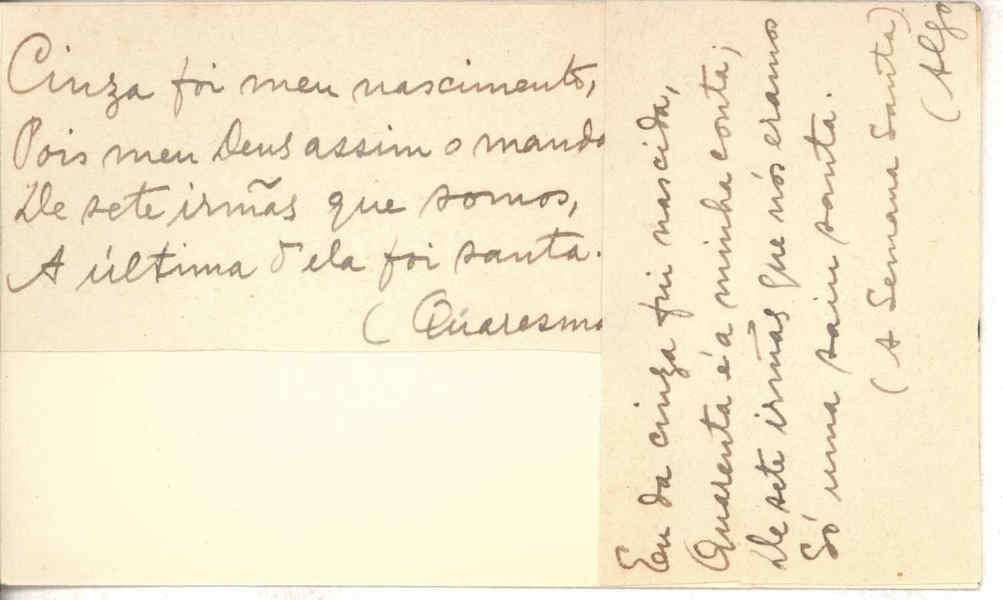 Cinza foi meu nascimento,
Pois meu Deus assim o manda
De sete irmãs que somos,
A última d'ela foi santa.
(Quaresma
Eeu da cinza fui nascida,
Quarenta é a minha conta;
De sete irmãs que nós eramos
Só uma saiu santa.
(A Semana Santa)
(Algo